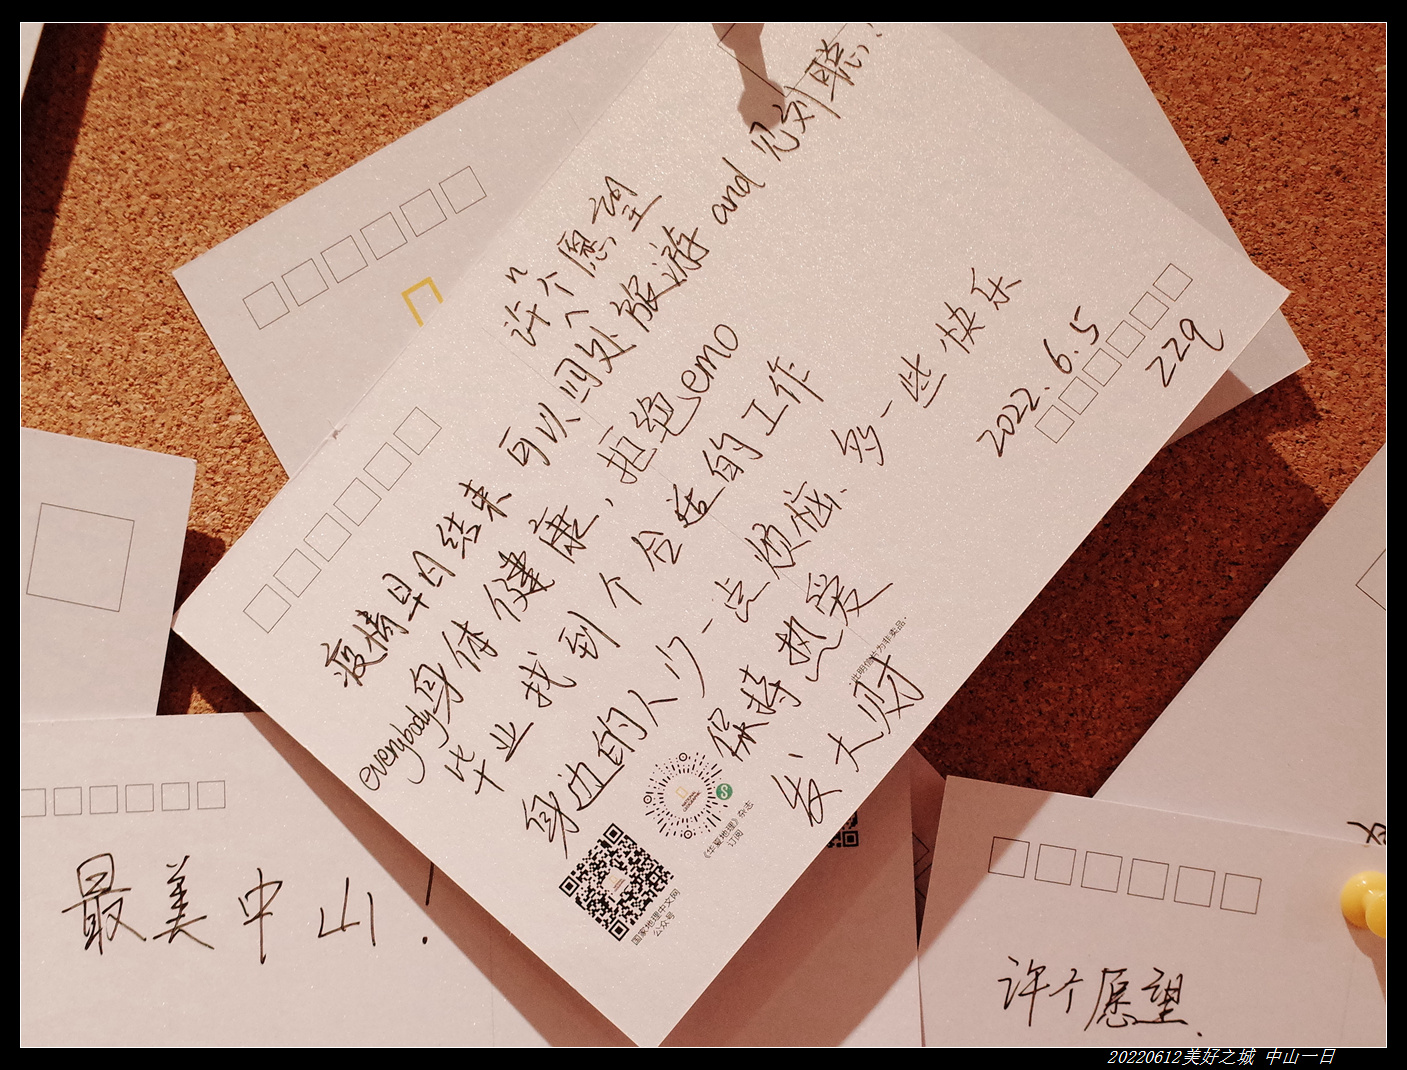 许n个愿望
疫情早日结束 可以四处旅游 and 见刘聪.
everybody身体健康，拒绝emo
毕业找到个合适的工作
身边的人少一点烦恼、多一些快乐
保持热爱
发大财
2022.6.5
zzq
·此明信片为非卖品·
《华夏地理》杂志
订阅
国家地理中文网
公众号
最美中山!
许个愿望.
20220612美好之城 中山一日